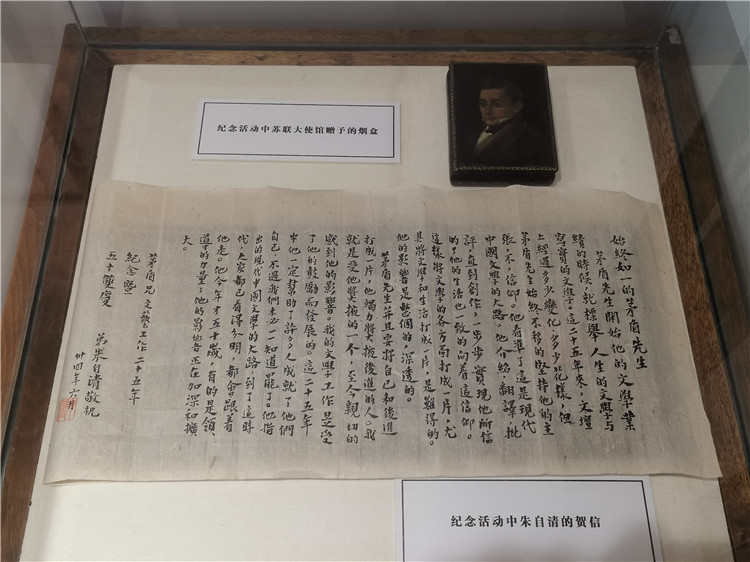 纪念活动中苏联大使馆赠予的烟盒
始终如一的茅盾先生
茅盾先生開始他的文學業
績的時候,就標舉人生的文學与
寫實的文學。這二十五年來,文壇
上經過多少變化,多少花樣,但
茅盾先生始終不移的堅持他的主
張,不,信仰。他看準了這是現代
中國文學的大路。他介紹,翻譯,批
評,直到創作,一步步實現他所信
的。他的生活也一致的向着這信仰。
這樣將文學的各方面打成一片,尤
其將文學和生活打成一片,是難得的。
他的影響是整個的,深透的。
茅盾先生並且要將自己和後進
打成一片,他竭力獎掖後進的人。我
就是受他獎掖的一个,至今親切的
感到他的影響。我的文學工作是受
了他的鼓勵而發展的。這二十五年
中他一定幫助了許多人成就了他們
自己,不過我們未必一一知道罷了。他指
出的現代中國文學的大路到了這時
代,大家都已看得分明,都會跟着
他走。他今年才五十歲,有的是領
導的力量;他的影響正在加深和擴
大。
茅盾兄文藝工作二十五年
紀念暨
五十雙慶
弟朱自清敬祝
卅四年六月
纪念活动中朱自清的贺信